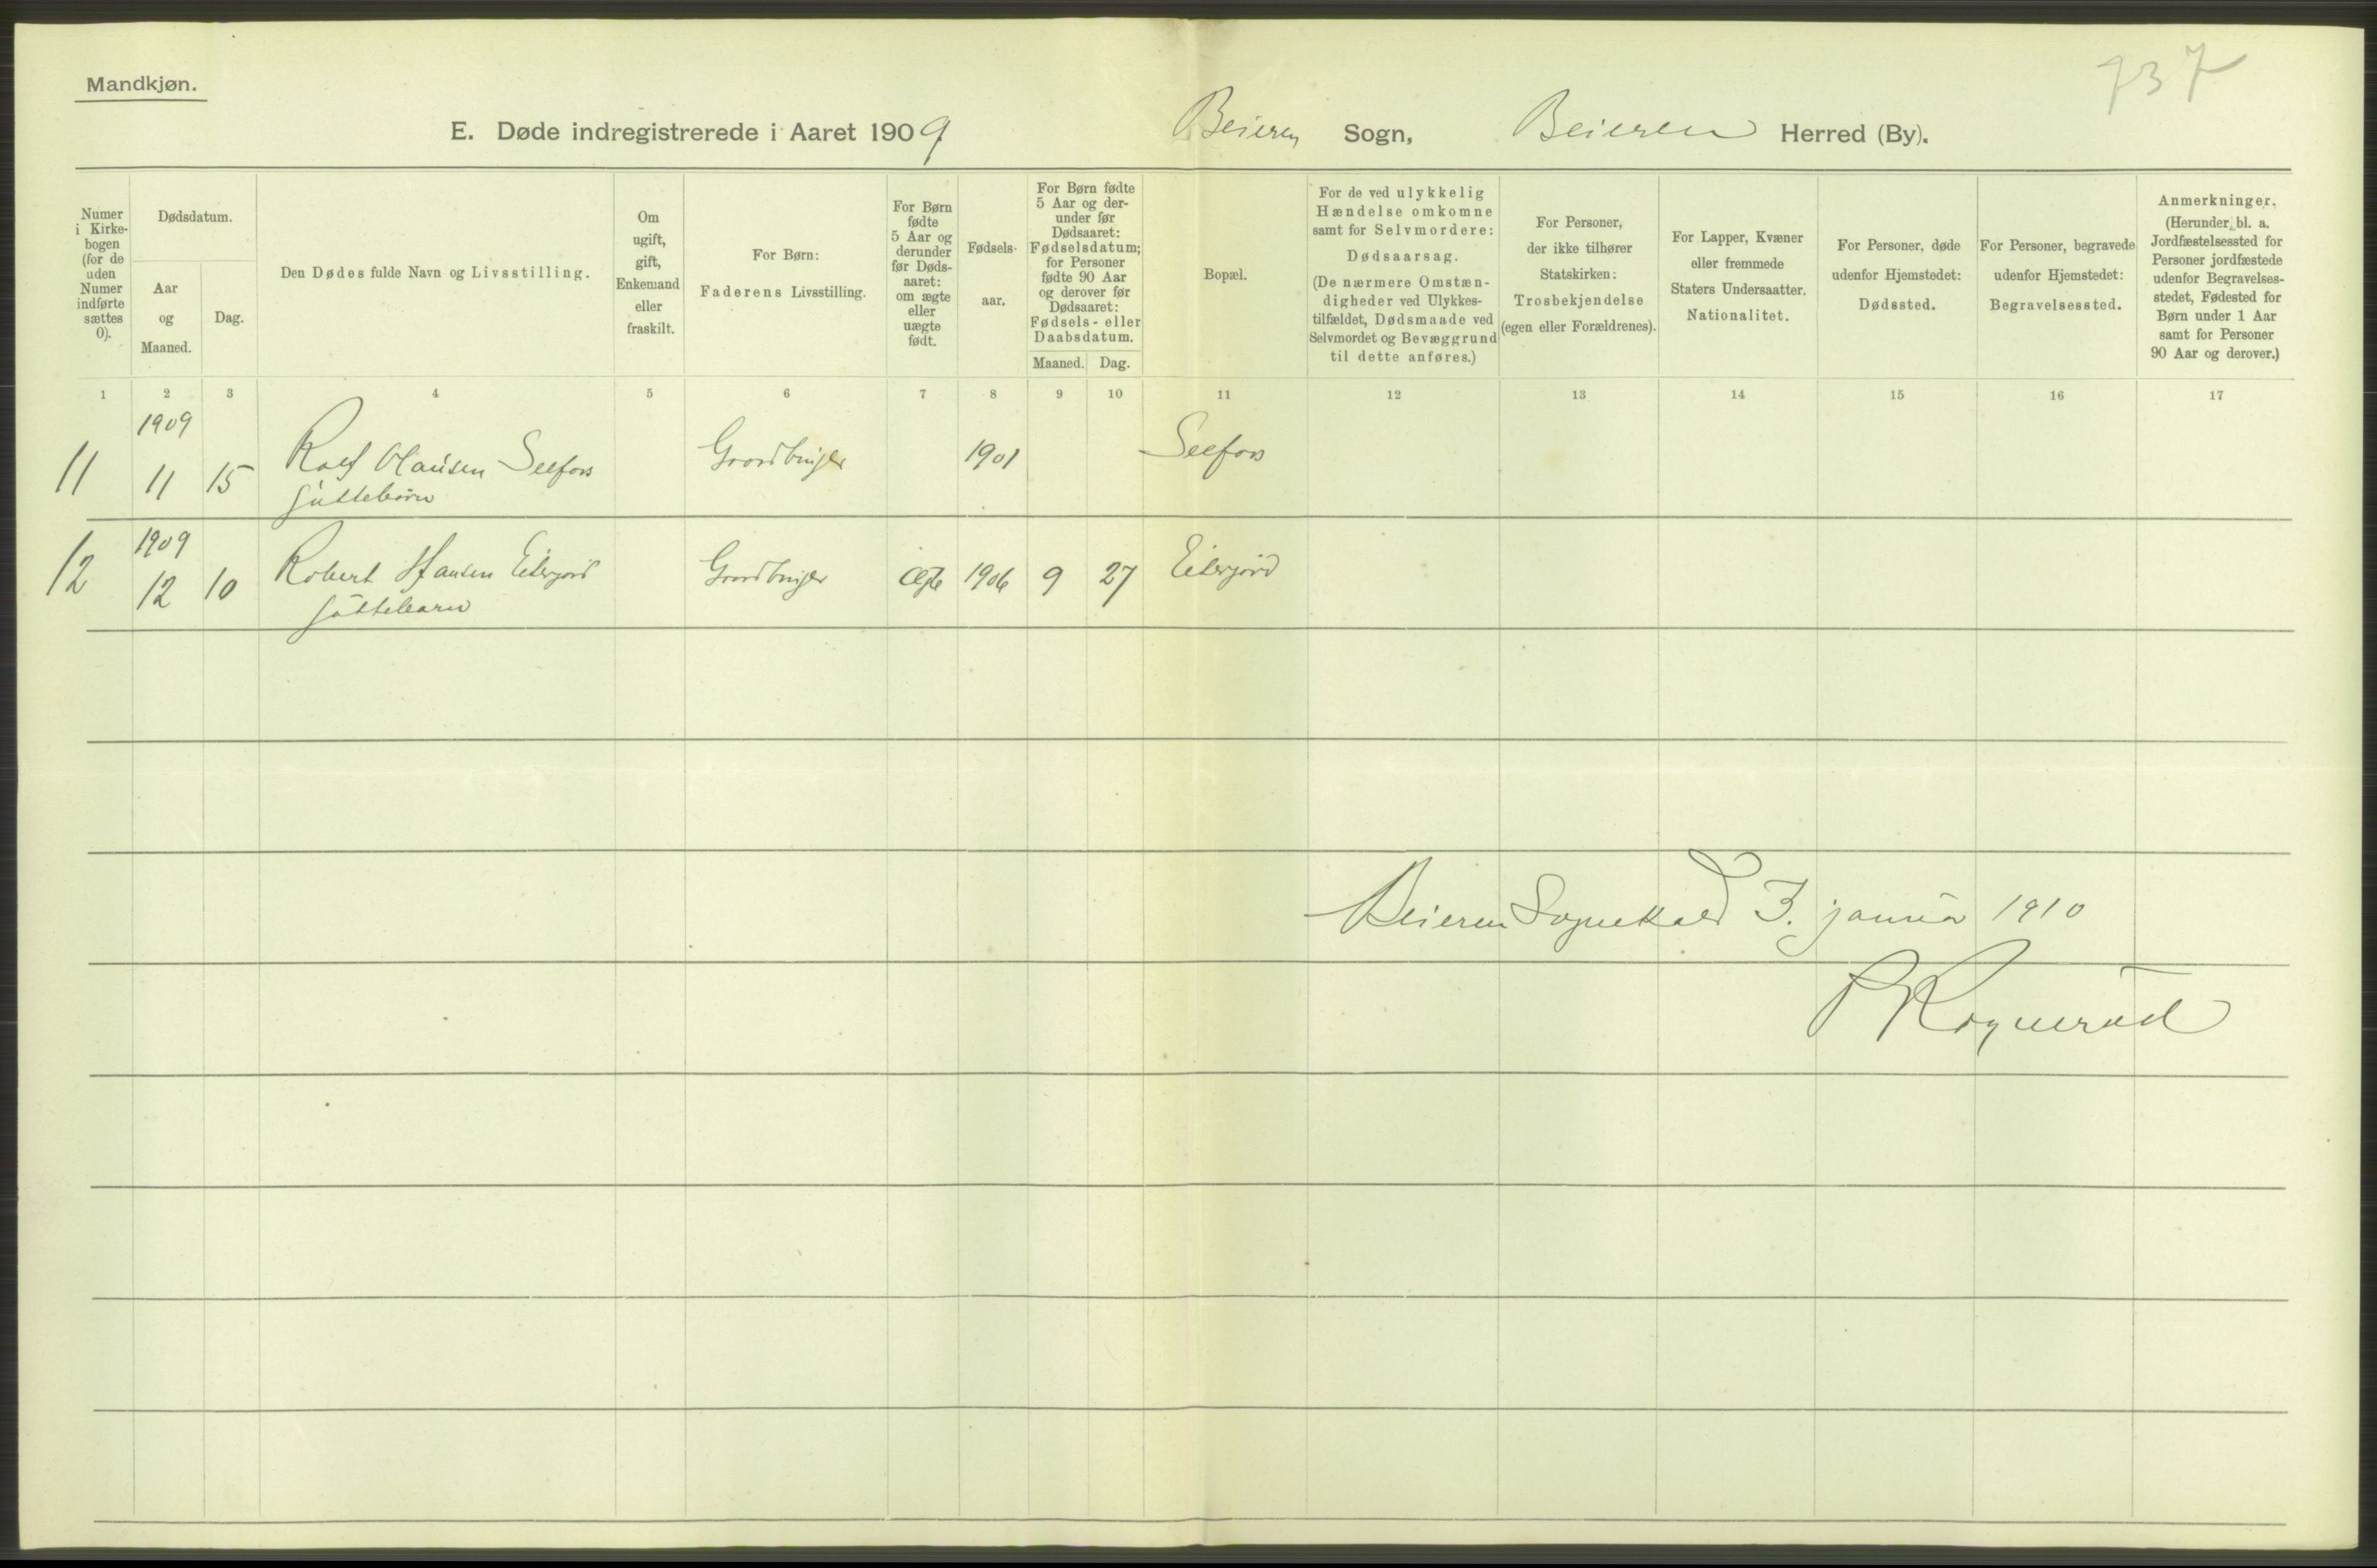 Mandkjøn.
737
E. Døde indregistrerede i Aaret 1909 Beieren Sogn, Beieren Herred (By).
Numer i Kirke-bogen (for de uden Numer indførte sættes 0).
Dødsdatum.
Aar og Maaned.
Dag.
Den Dødes fulde Navn og Livsstilling.
Om ugift, gift, Enkemand eller fraskilt.
For Børn:
Faderens Livsstilling.
For Børn fødte 5 Aar og derunder før Døds-aaret: om ægte eller uægte født.
Fødsels-aar.
For Børn fødte 5 Aar og der-under før Dødsaaret: Fødselsdatum; for Personer fødte 90 Aar og derover før Dødsaaret: Fødsels- eller Daabsdatum.
Maaned. Dag.
Bopæl.
For de ved ulykkelig Hændelse omkomne samt for Selvmordere:
Dødsaarsag.
(De nærmere Omstæn-digheder ved Ulykkes-tilfældet, Dødsmaade ved Selvmordet og Bevæggrund til dette anføres.)
For Personer, der ikke tilhører Statskirken:
Trosbekjendelse
(egen eller Forældrenes).
For Lapper, Kvæner eller fremmede Staters Undersaatter.
Nationalitet.
For Personer, døde udenfor Hjemstedet:
Dødssted.
For Personer, begravede udenfor Hjemstedet:
Begravelsessted.
Anmerkninger.
(Herunder bl. a. Jordfæstelsessted for Personer jordfæstede udenfor Begravelses-stedet, Fødested for Børn under 1 Aar samt for Personer 90 Aar og derover.)
1 2 3 4 5 6 7 8 9 10 11 12 13 14 15 16 17
1909
11 11 15 Rolf Olausen Selfors Gaardbruger 1901 Selfors
1909
12 12 10 Robert Hansen Eiterjord Gaardbruger ægte 1906 9 27 Eiterjord
Beieren Sognekald 3. januar 1910